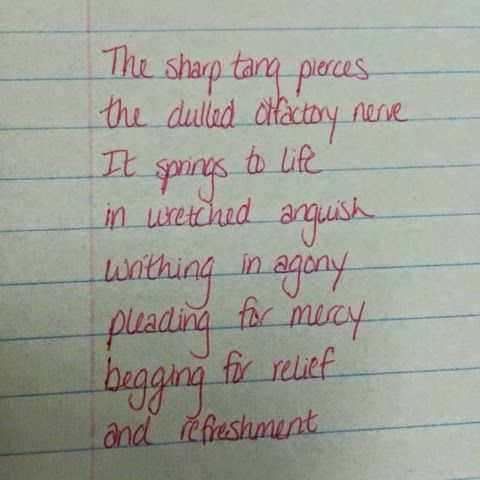 The sharp tang pierces
the dulled olfactory nerve
It springs to life
in wretched anguish
writhing in agony
pleading for mercy
begging for relief
and refreshment